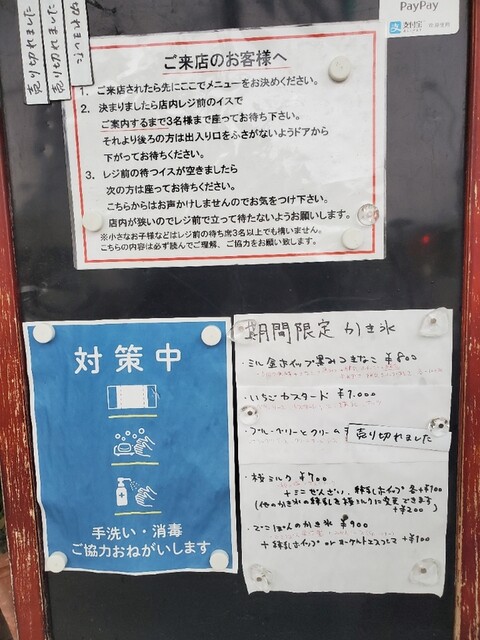 売り切れました
売り切れました
PayPay
ご来店のお客様へ
1. ご来店されたら先にここでメニューをお決めください。
2. 決まりましたら店内レジ前のイスで
ご案内するまで3名様まで座ってお待ち下さい。
それより後ろの方は出入り口をふさがないようドアから
下がってお待ちください。
3. レジ前の待つイスが空きましたら
次の方は座ってお待ちください。
こちらからはお声かけしませんのでお気をつけ下さい。
店内が狭いのでレジ前で立って待たないようお願いします。
※小さなお子様などはレジ前の待ち席3名以上でも構いません。
こちらの内容は必ず読んでご理解、ご協力をお願い致します。
対策中
手洗い・消毒
ご協力おねがいします
期間限定 かき氷
・ミルク金ホイップ黒みつきなこ ¥800
・いちごカスタード ¥1.000
・ブルーベリーとクリーム
売り切れました
・極ミルク ¥700
+ミニぜんざい、練乳ホイップ 各+¥100
(他のかき氷の練乳を極ミルクに変更できます
+¥200)
・でこぽんのかき氷 ¥900
+練乳ホイップ or ヨーグルトエスプーマ +¥100